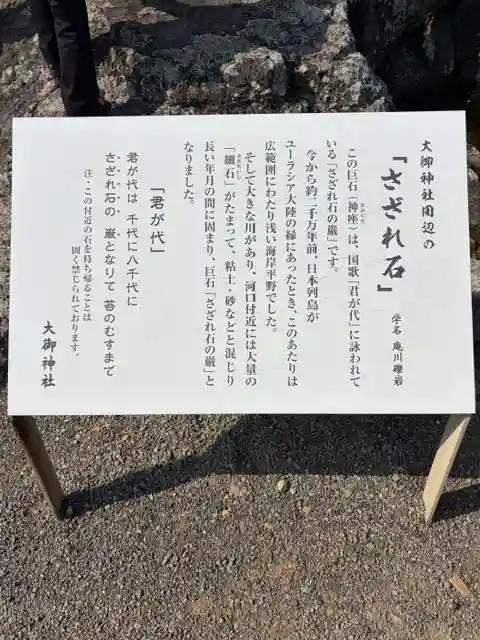 大御神社周辺の
『さざれ石』
学名 庵川礫岩
この巨石（神座）は、国歌「君が代」に詠われて
いる「さざれ石の巌」です。
今から約二千万年前、日本列島が
ユーラシア大陸の縁にあったとき、このあたりは
広範囲にわたり浅い海岸平野でした。
そして大きな川があり、河口付近には大量の
「細石」がたまって、粘土・砂などと混じり
長い年月の間に固まり、巨石「さざれ石の巌」と
なりました。
「君が代」
君が代は 千代に八千代に
さざれ石の 巌となりて 苔のむすまで
注・この付近の石を持ち帰ることは
固く禁じられております。
大御神社